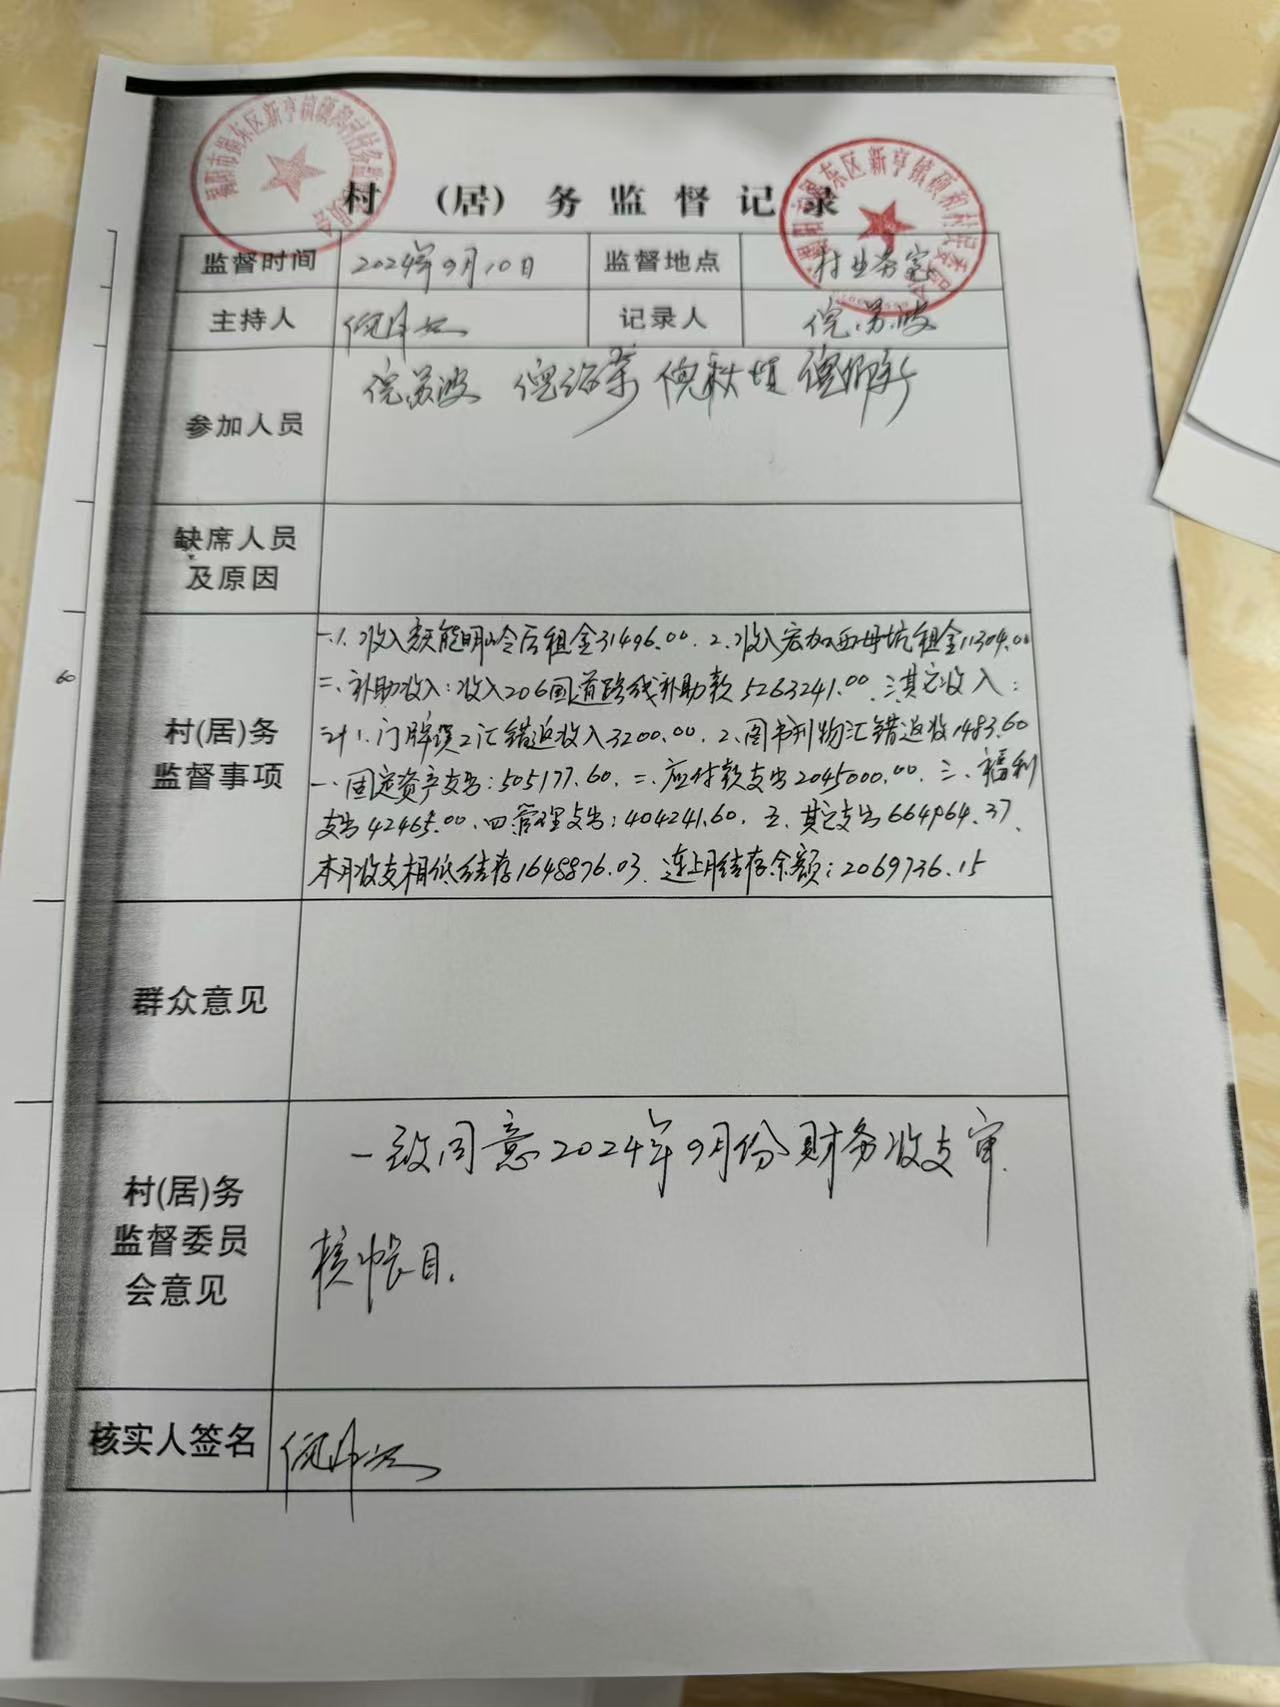 村 (居) 务 监 督 记 录
监督时间 2024年9月10日 监督地点 村业务室
主持人 倪 记录人 倪苏波
参加人员 倪苏波 倪 倪秋 倪
缺席人员
及原因
一.1.收入 租金31496.00. 2.收入宏加西母坑租金11304.00
二.补助收入:收入206国道路线补助款5263241.00.三其它收入:
1.门牌 汇错返收入3200.00. 2.图书刊物汇错返收1483.60
村(居)务
监督事项
一.固定资产支出:505177.60.二.应付款支出2045000.00.三.福利
支出42465.00.四管理支出:404241.60.五.其它支出664964.37.
本月收支相抵结存1648876.03.连上月结存余额:2069736.15
群众意见
一致同意2024年9月份财务收支审
核帐目.
村(居)务
监督委员
会意见
核实人签名 倪